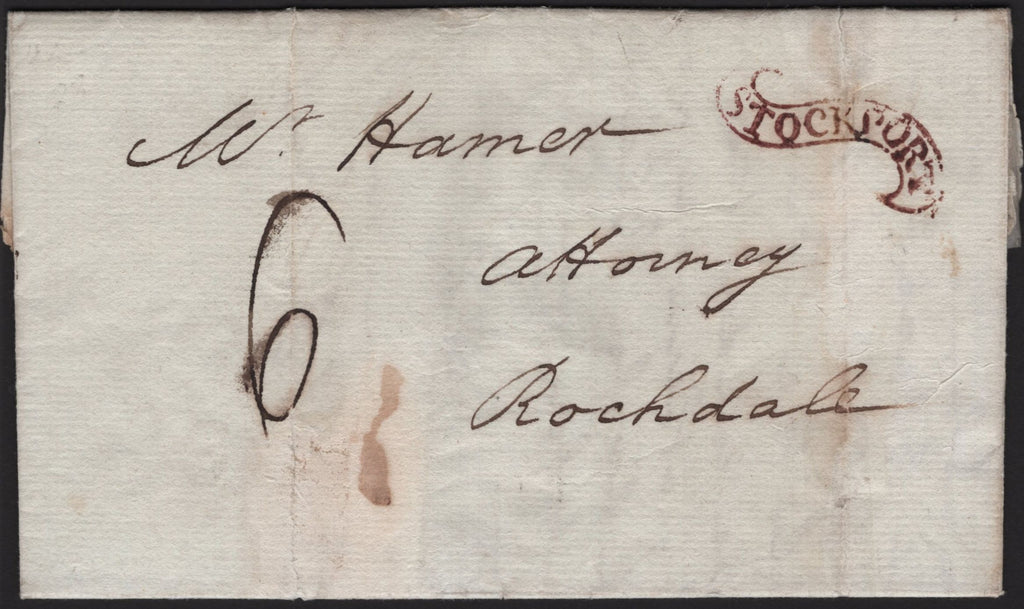 STOCKPORT
Mr. Hamer
6
Attorney
Rochdale